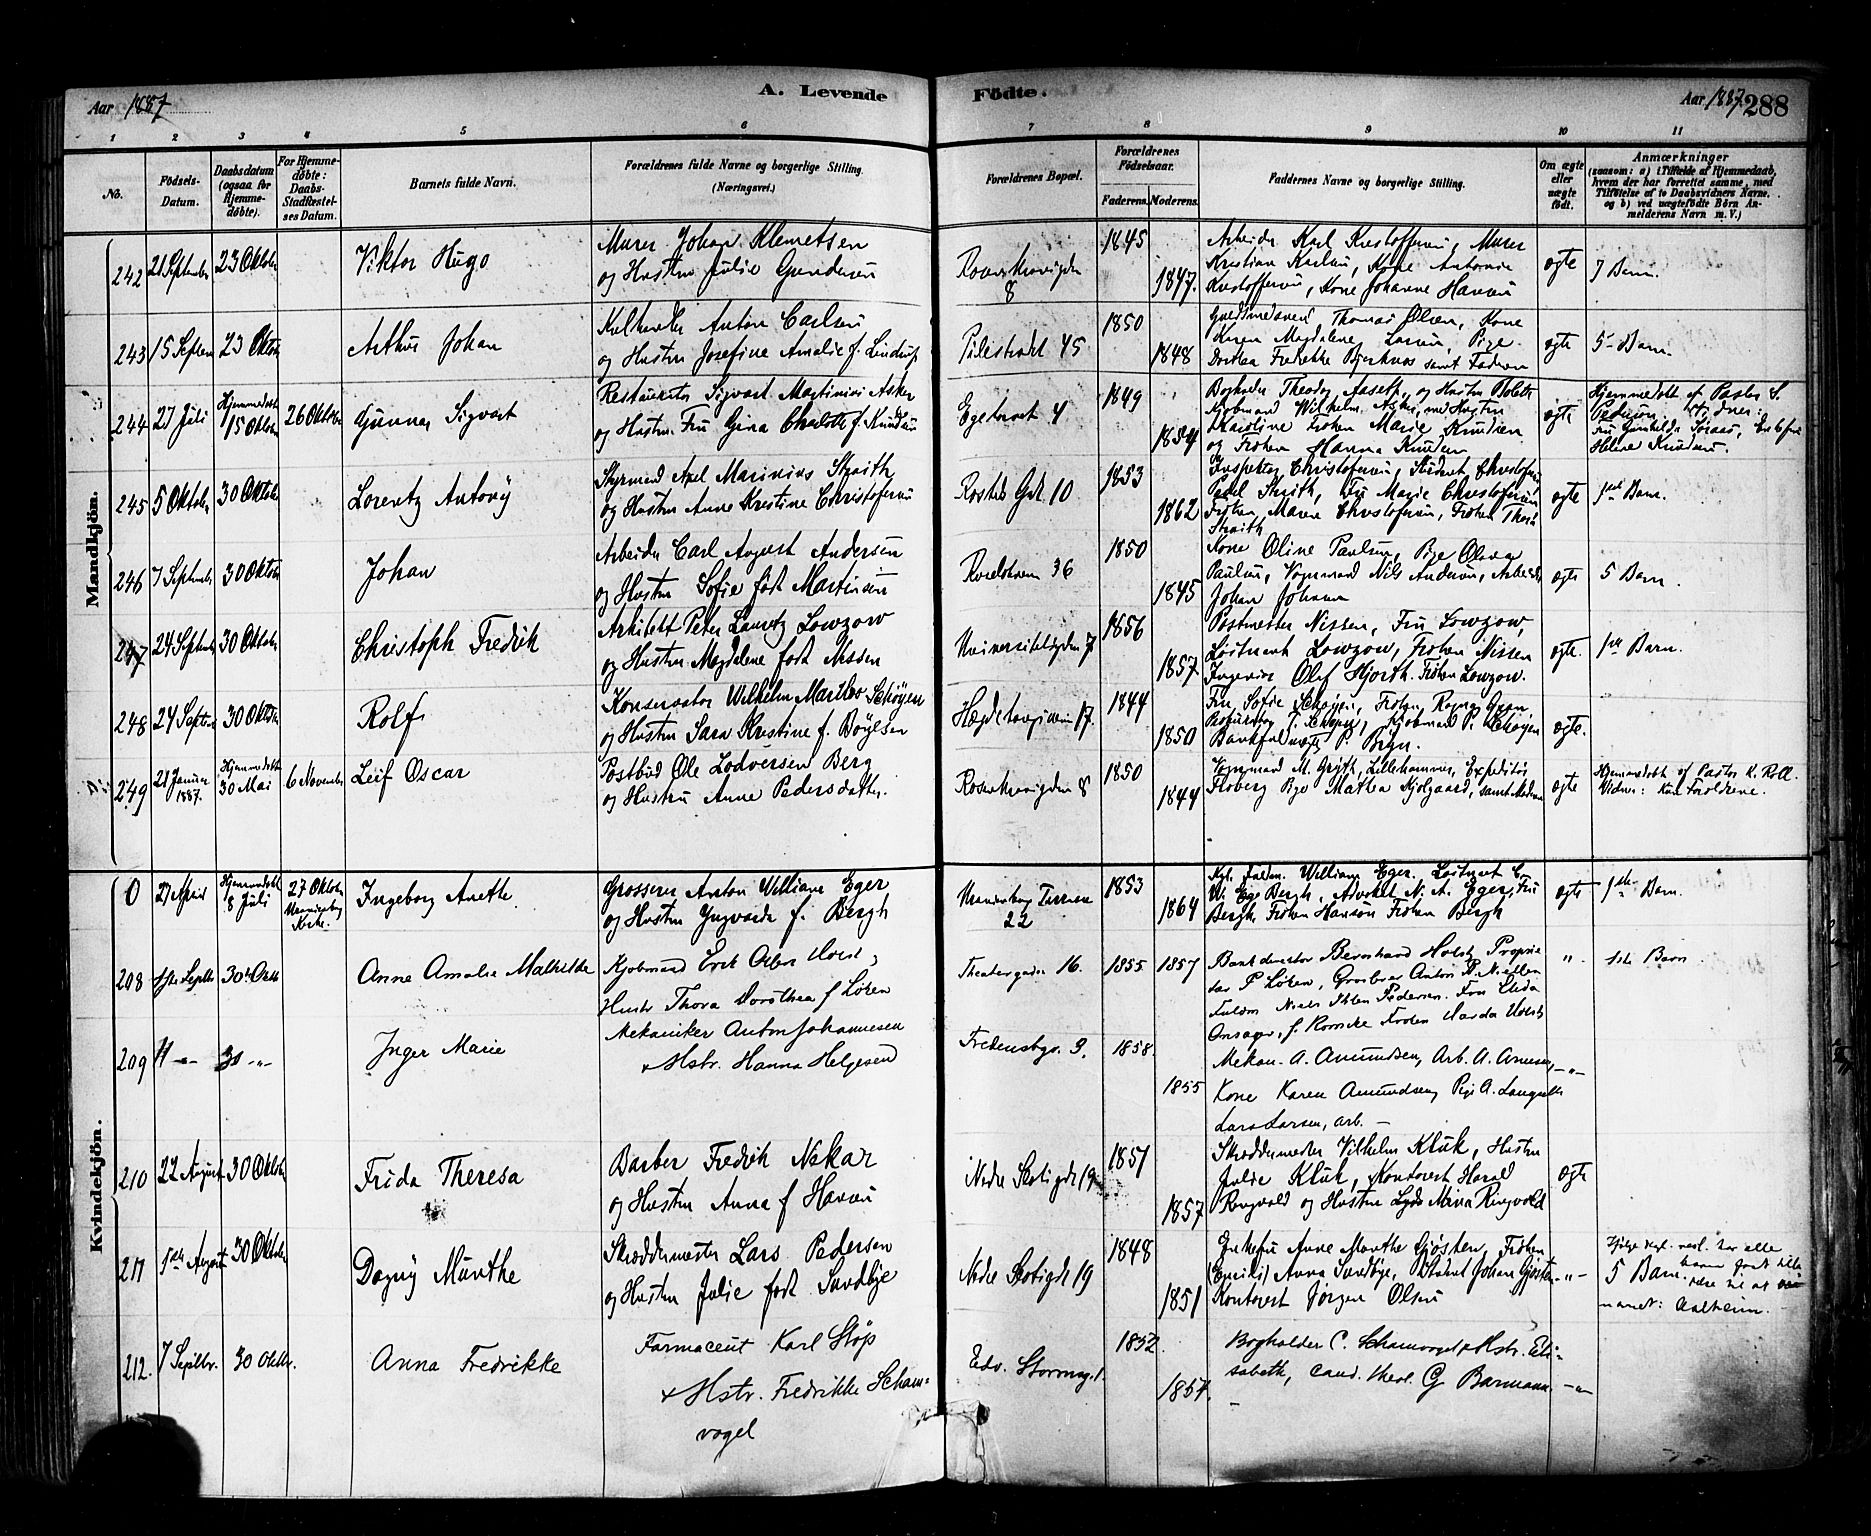 Aar 1887
A. Levende
Födte.
Aar 1887. 288
1 2 3 4 5 6 7 8 9 10 11
No.
Födsels-
Datum.
Daabsdatum
(ogsaa for
Hjemme-
döbte).
For Hjemme-
döbte:
Daabs-
Stadfæstel-
ses Datum.
Barnets fulde Navn.
Forældrenes fulde Navne og borgerlige Stilling.
(Næringsvei.)
Forældrenes Bopæl.
Forældrenes
Födselsaar.
Faderens. Moderens.
Faddernes Navne og borgerlige Stilling.
Om ægte
eller
uægte
födt.
Anmærkninger
(saasom: a) i Tilfælde af Hjemmedaab,
hvem der har forrettet samme, med
Tilföielse af to Daabsvidners Navne.
og b) ved uægtefödte Börn An-
melderens Navn m. V.)
Mandkjön.
242 21 September 23 Oktober Viktor Hugo
Murer Johan Klemetsen
og Hustru Julie Gundersen
8
1845
1847.
Arbeider Karl Kristoffersen, Murer
Kristian Karlsen, Kone Antonia
Kristoffersen, Kone Johanne Hansen
ægte 7 Barn.
243 15 Septem 23 Oktob Arthur Johan
Anton Carlsen
og Hustru Josefine Amalie f. Lindrup
Pilestrædet 45
1850
1848
Guldsmedsvend Thomas Olsen, Kone
Karen Magdalene Larsen, Pige
samt Faderen
ægte 5 Barn.
244 27 Juli Hjemmedöbt
15 Oktober 26 Oktober Gunnar Sigvart
Restauratör Sigvart Martinius Asker
og Hustru Fru Gina Charlotte f. Knudsen
Egetorvet 4
1849
1854
Wilhelm Asker med Hustru
Karoline Fröken Marie Knudsen
og Fröken Hanna Knudsen
ægte
Hjemmedöbt af Pastor S.
Pedersen.
Helene Knudsen.
245 5 Oktober 30 Oktober Lorentz Antony
Styrmand Axel Marinius Straith
og Hustru Anne Kristine Christofersen
10
1853
1862
Inspektör Christofersen, Student Christofersen
Paul Straith, Fru Marie Christofersen
Fröken Maren Christofersen, Fröken Thora
Straith
ægte 1ste Barn.
246 7 September 30 Oktober Johan
Arbeider Carl August Andersen
og Hustru Sofie födt Martinsen
36
1850
1845
Kone Oline Paulsen, Pige Olava
Paulsen, Vognmand Nils Andersen, Arbeider
Johan Johansen
ægte 5 Barn.
247 24 September 30 Oktober Christoph Fredrik
Arkitekt Peter Lauritz Lowzow
og Hustru Magdalene födt Nissen
Universitetsgaden 7
1856
1857.
Postmester Nissen, Fru Lowzow,
Löitnant Lowzow, Fröken Nissen
Ingeniör Olaf Hjorth. Fröken Lowzow.
ægte. 1ste Barn.
248 24 Septem 30 Oktober Rolf
Konservator Wilhelm Martleo Schöyen
og Hustru Sara Kristine f. Böylsen
Hægdehaugsveien 17.
1844
1850
Fru Sofie Schöyen, Fröken Ragna
T. Schöyen, Kjöbmand P. Schöyen
ægte.
249 21 Januar
1887. Hjemmedöbt
30 Mai 6 November Leif Oscar
Postbud Ole Lodversen Berg
og Hustru Anne Pedersdatter.
8
1850
1844
Vognmand M. Gröth, Lillehammer, Expeditör
Floberg Pige Mathea Kjölgaard, samt Moderen
ægte
Hjemmedöbt af Pastor K. Roll.
Vidner: Kun Forældrene.
Kvindekjön.
0 27 April Hjemmedöbt
8 Juli 27 Oktober
Kirke. Ingeborg Anethe.
Grosserer Anton William Eger
og Hustru Yngvarda f. Bergh
22
1853
1864
William Eger. Löitnant C.
W. Eger Bergh, Advokat N. A. Eger, Fru
Bergh Fröken Hanson Fröken Bergh
ægte 1ste Barn.
208 30te Octb Anna Amalie Mathilde
Kjöbmand Erik Olbr Holst
Hustr Thora Dorothea f. Lören
Theatergaden 16.
1855 1857
Bankdirektör Bernhard Holst, Proprie
tær P Lören, Grosserer Anton P. Nielsen
Fuldm Niels Ihlen Pedersen. Fru Elida
Onsager, f. Fröken Holst
" 1ste Barn
209 30 -"- Inger Marie
Mekaniker Anton Johannesen
+ Hstr. Hanna Helgesen
Fredensbgv. 3.
1858.
1855
Mekan. A. Amundsen, Arb. A. Arnesen,
Kone Karen Amundsen, Pige A. Langseth
Lars Larsen, arb. –
-"-
210 22 August 30 Oktober Frida Theresa
Barber Fredrik Nakar
og Hustru Anna f Hansen
Nedre Slotsgde 19
1857
1857
Skræddermester Vilhelm Kluk, Hustru
Julie Kluk, Kontorist Harald
Ringvold og Hustru Lyda Mina Ringvold
ægte
211 1ste August 30 Oktober Dagny Munthe
Skræddermester Lars Pedersen
og Hustru Julie födt Sandbye
Nedre Slotsgde 19
1848
1851
Enkefru Anne Marthe Gjösten, Fröken
Anna Sandbye, Student Johan Gjösten
Kontorist Jörgen Olsen
-"-
5 Barn.
212. 7 Septbr. 30 Oktbr. Anna Fredrikke
Farmaceut Karl Stöp
+ Hstr. Fredrikke Scham-
vogel
Edv. Stormsg. 1.
1852
1857.
Bogholder C. Schamvogel + Hstr. Eli-
sabeth, Cand. theol. G Barmann
-"-